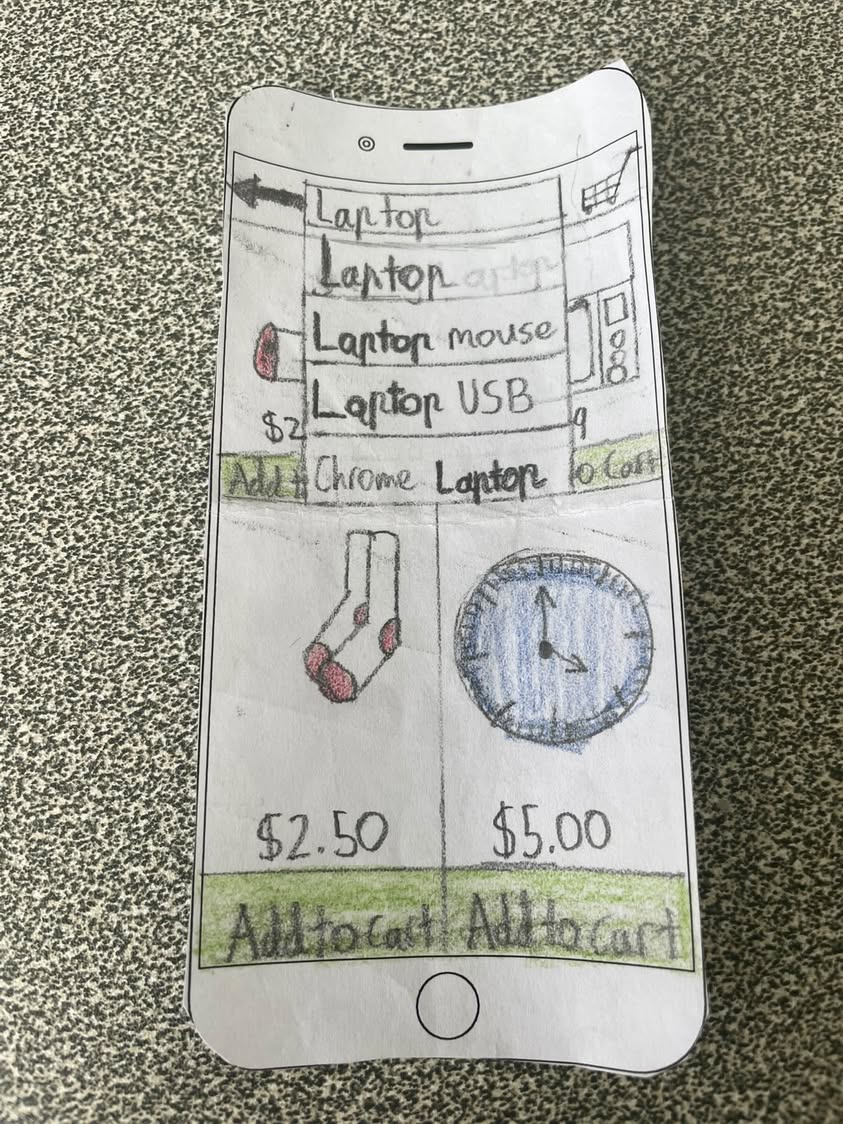 Laptop
Laptop
Laptop mouse
Laptop USB
$2 9
Add t Chrome Laptop o Cart
$2.50 $5.00
Add to cart Add to cart